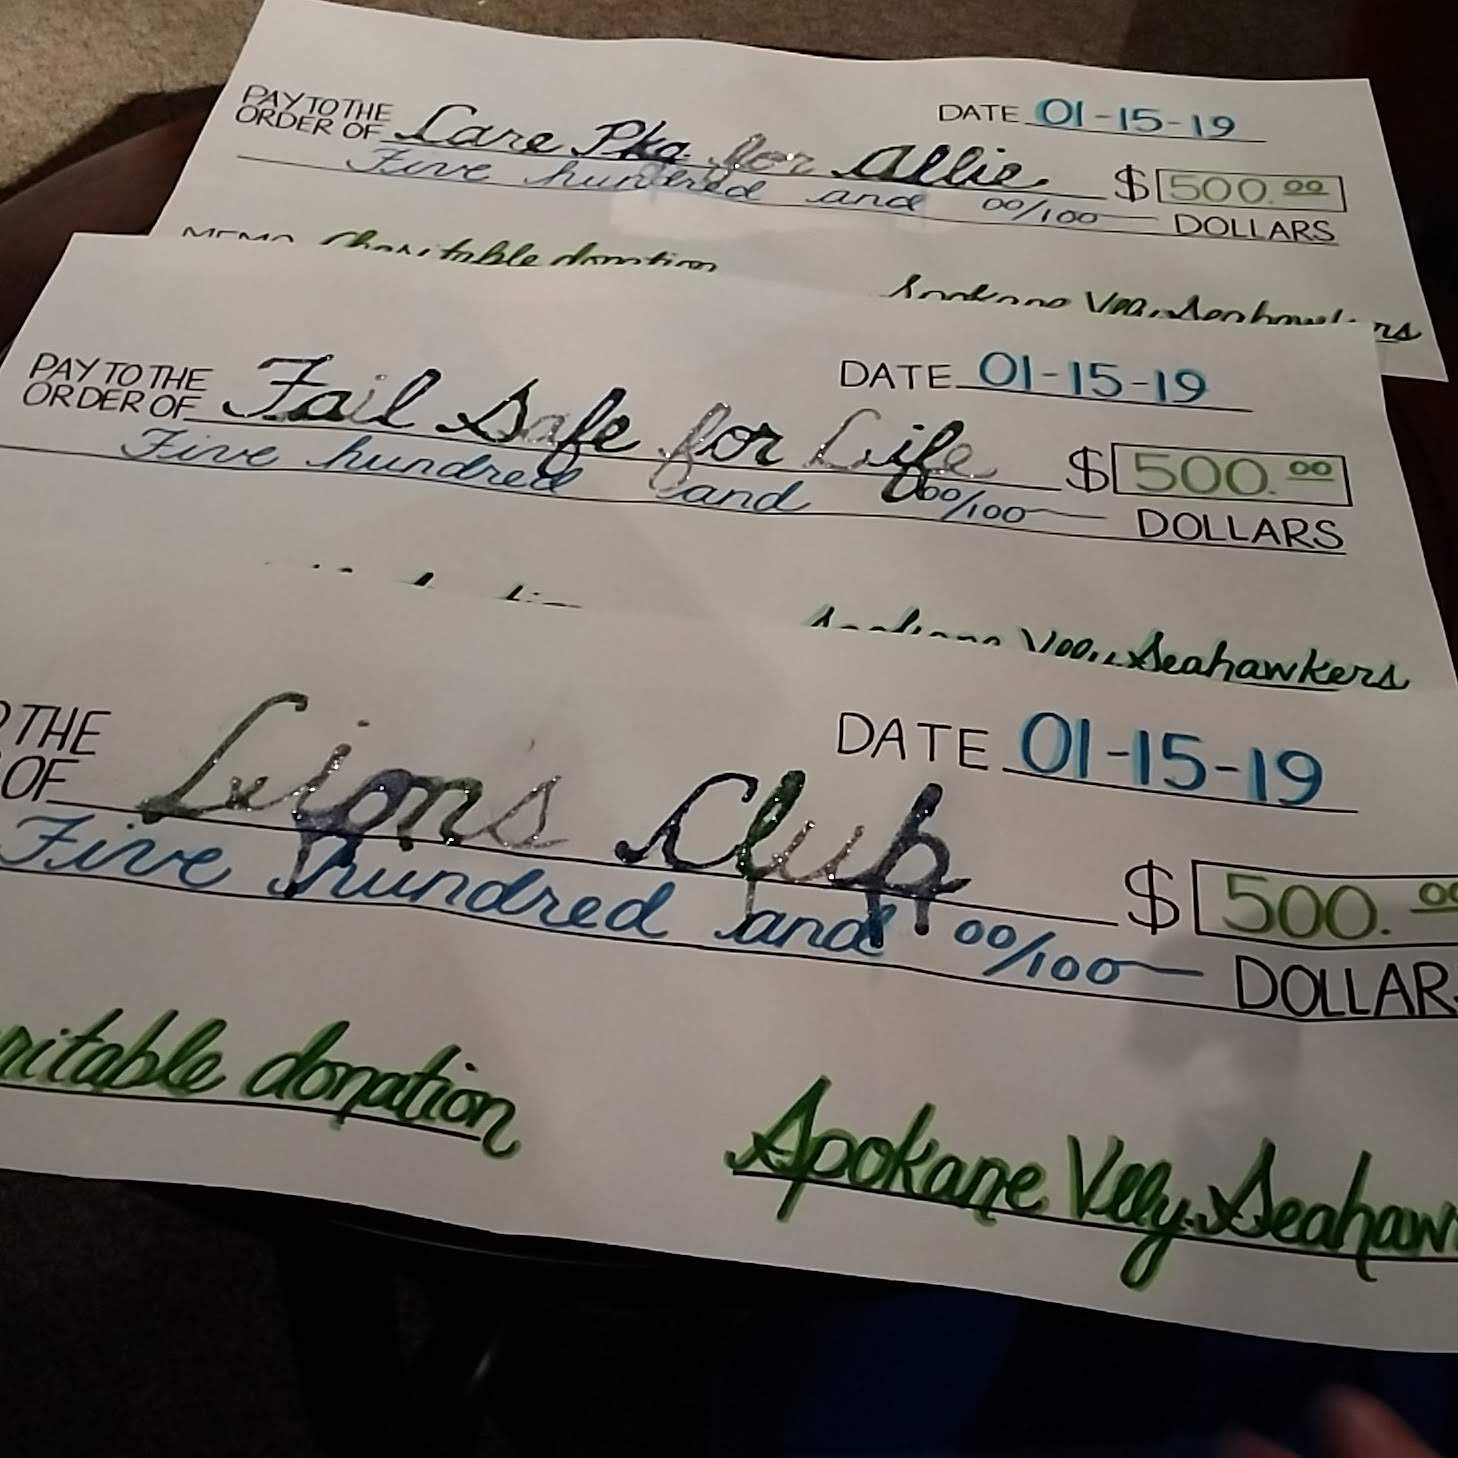 PAY TO THE
ORDER OF Care Pkg for Allie
DATE 01-15-19
$ 500.00
Five hundred and 00/100 DOLLARS
MEMO Charitable donation
Spokane Vly. Seahawkers
PAY TO THE
ORDER OF Fail Safe for Life
DATE 01-15-19
$ 500.00
Five hundred and 00/100 DOLLARS
Spokane Vly. Seahawkers
THE
OF Lions Club
DATE 01-15-19
$ 500.00
Five hundred and 00/100 DOLLAR
ritable donation
Spokane Vly. Seahaw